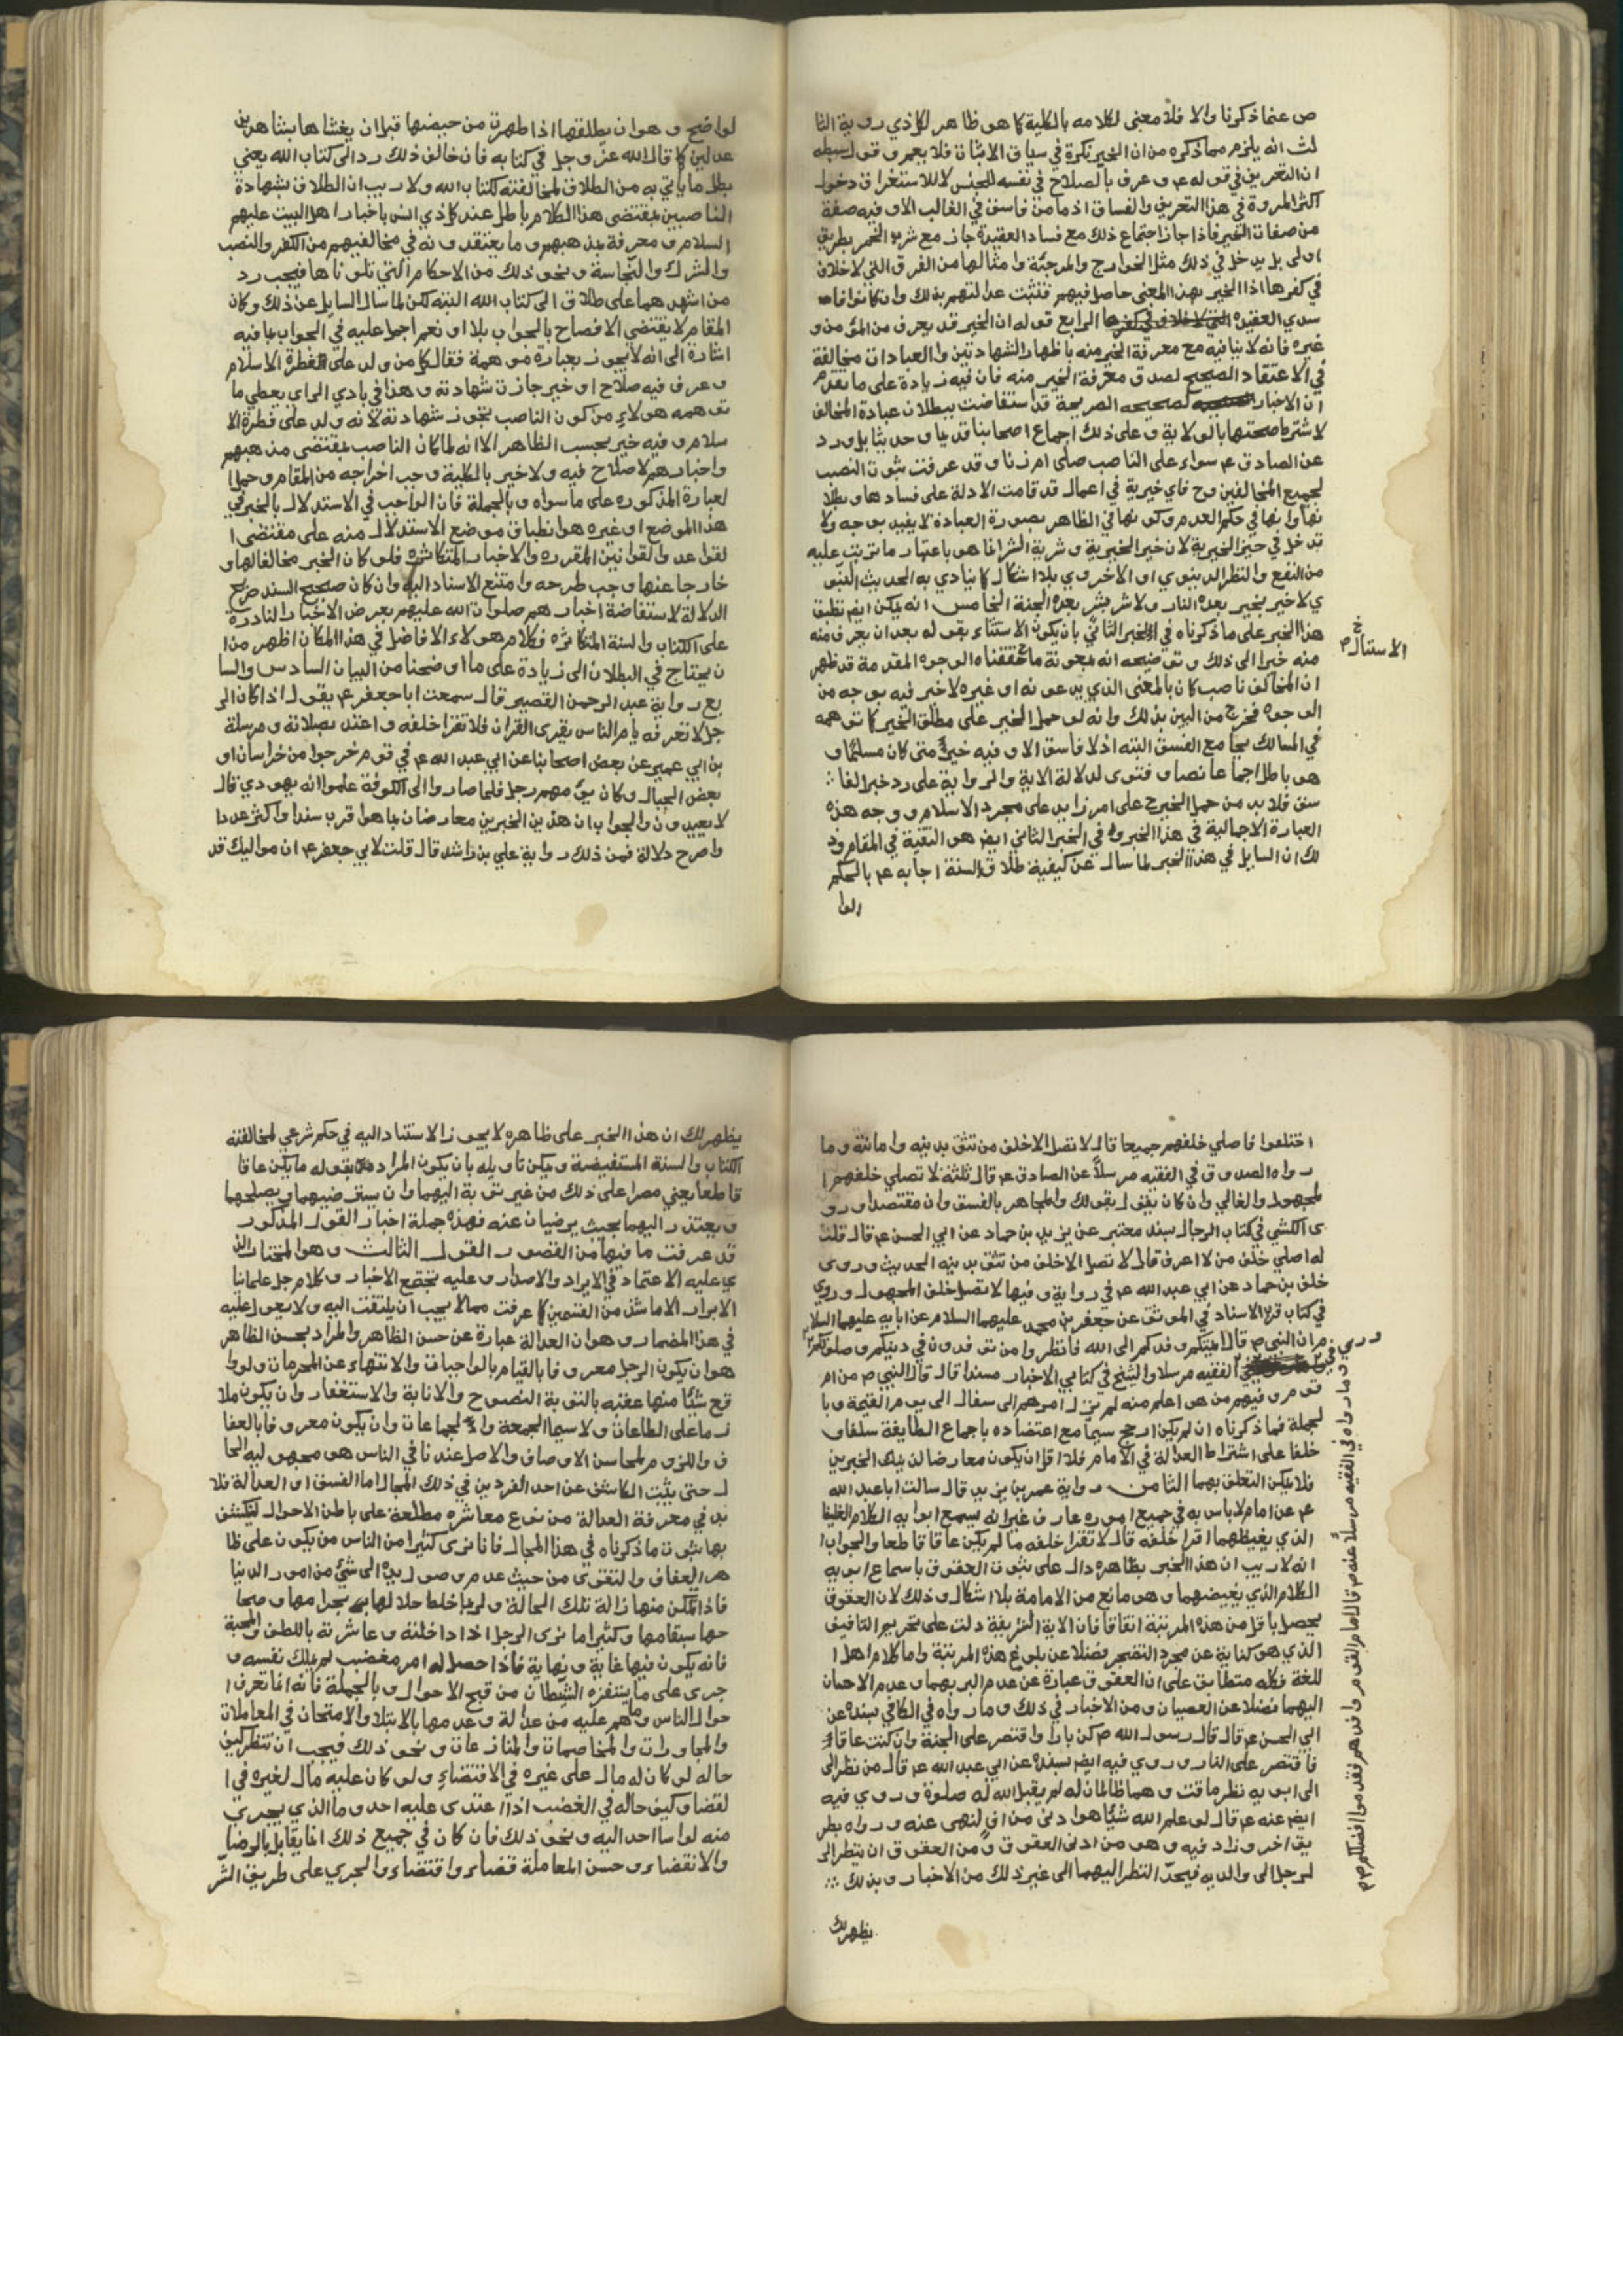 ص عنما ذكرنا والا فلا معنى لكلامه بالكلية كما هو ظاهر لكل ذي روية الثا
لث انه يلزم مما ذكره من ان الخير نكرة في سياق الاثبات فلا يعم وقول سبطه
ان التعريف في قوله ع وعرف بالصلاح في نفسه للجنس لا للاستغراق دخول
اكثر المروة في هذا التعريف والفساق اذ ما من فاسق في الغالب الا وفيه صفة
من صفات الخير فاذا جاز اجتماع ذلك مع فساد العقيدة جاز مع شرب الخمر بطريق
اولى بل يدخل في ذلك مثل الخوارج والمرجئة وامثالها من الفرق التي لا خلاف
في كفرها اذا الخير بهذا المعنى حاصل فيهم فتثبت عدالتهم بذلك وان كانوا فا
سدي العقيدة الرابع قوله ان الخير قد يعرف من المؤمن و
غيره فانه لا ينافيه مع معرفة الخير منه باظهار الشهادتين والعبادات مخالفة
في الاعتقاد الصحيح لصدق معرفة الخير منه فان فيه زيادة على ما تقدم
ان الاخبار الصحيحه الصريحة قد استفاضت ببطلان عبادة المخالف
لاشتراط صحتها بالولاية وعلى ذلك اجماع اصحابنا قديما وحديثا بل ورد
عن الصادق ع سواء على الناصب صلى ام زنا وقد عرفت ثبوت النصب
لجميع المخالفين وح فاي خيرية في اعمال قد قامت الادلة على فسادها وبطلا
نها وانها في حكم العدم وكونها في الظاهر بصورة العبادة لا يفيد بوجه ولا
تدخل في حيز الخيرية لان خير الخيرية وشرية الشر انما هو باعتبار ما ترتب عليه
من النفع والنظر الدنيوي او الاخروي بلا اشكال كما ينادي به الحديث النبو
ي لا خير بخير بعده النار ولا شر بشر بعده الجنة الخامس انه يمكن ايضا تطبيق
هذا الخبر على ما ذكرناه في الخبر الثاني بان يكون الاستثناء بقوله بعد ان يعرف منه
منه خيرا الى ذلك وتوضيحه انه بمعونة ما حققناه الوجوه المقدمة قد ظهر
ان المخالف ناصب كان بالمعنى الذي يدعونه او غيره لا خير فيه بوجه من
الوجوه فخرج من البين بذلك وانه لو حمل الخير على مطلق الخير كما توهمه
في المسالك يجامع الفسق البته اذ لا فاسق الا وفيه خير متى كان مسلما و
هو باطل اجماعا نصا وفتوى لدلالة الاية والرواية على رد خبر الفا
سق فلا بد من حمل الخير ح على امر زايد على مجرد الاسلام ووجه هذه
العبارة الاجمالية في هذا الخبر وفي الخبر الثاني ايضا هو التقية في المقام وذ
لك ان السايل في هذا الخبر لما سال عن كيفية طلاق السنة اجابه ع بالحكم
الوا
لواضح وهو ان يطلقها اذا طهرت من حيضها قبل ان يغشاها بشاهدين
عدلين كما قال الله عز وجل في كتابه فان خالف ذلك رد الى كتاب الله يعني
بطل ما ياتي به من الطلاق لمخالفته لكتاب الله ولا ريب ان الطلاق بشهادة
الناصبين بمقتضى هذا الكلام باطل عند كل ذي انس باخبار اهل البيت عليهم
السلام ومعرفة بمذهبهم وما يعتقدونه في مخالفيهم من الكفر والنصب
والشرك والنجاسة ونحو ذلك من الاحكام التي تلوناها فيجب رد
من اشهدهما على طلاق الى كتاب الله البته لكن لما سال السايل عن ذلك وكان
المقام لا يقتضي الافصاح بالجواب بلا او نعم اجمل عليه في الجواب بما فيه
اشارة الى انه لا يجوز بعبارة موهمة فقال كل من ولد على الفطرة الاسلام
وعرف فيه صلاح او خير جازت شهادته وهذا في بادي الراي يعطي ما
توهمه هولاء من كون الناصب يجوز شهادته لانه ولد على فطرة الا
سلام وفيه خير بحسب الظاهر الا انه لما كان الناصب بمقتضى مذهبهم
واخبارهم لا صلاح فيه ولا خير بالكلية وجب اخراجه من المقام وحمل ا
لعبارة المذكورة على ما سواه وبالجملة فان الواجب في الاستدلال بالخبر في
هذا الموضع او غيره هو انطباق موضع الاستدلال منه على مقتضى ا
لقواعد والقوانين المقرره والاخبار المتكاثره فلو كان الخبر مخالفا لها و
خارجا عنها وجب طرحه وامتنع الاسناد اليه وان كان صحيح السند صريح
الدلالة لاستفاضة اخبارهم صلوات الله عليهم بعرض الاخبار النادرة
على الكتاب والسنة المتكاثره فكلام هولاء الافاضل في هذا المكان اظهر من ا
ن يحتاج في البطلان الى زيادة على ما اوضحنا من البيان السادس والسا
بع رواية عبد الرحمن القصير قال سمعت ابا جعفر ع يقول اذا كان الر
جل لا تعرفه يام الناس يقرى القران فلا تقرا خلفه واعتد بصلاته ومرسلة
بن ابي عمير عن بعض اصحابنا عن ابي عبد الله ع في قوم خرجوا من خراسان او
بعض الجبال وكان يؤمهم رجل فلما صاروا الى الكوفة علموا انه يهودي قال
لا يعيدون والجواب ان هذين الخبرين معارضان بما هو اقرب سندا واكثر عددا
واصرح دلالة فمن ذلك رواية علي بن راشد قال قلت لابي جعفر ع ان مواليك قد
اختلفوا فاصلي خلفهم جميعا قال لا تصل الا خلف من تثق بدينه وامانته وما
رواه الصدوق في الفقيه مرسلا عن الصادق ع قال ثلثة لا تصلي خلفهم ا
لمجهول والغالي وان كان يقول بقولك والمجاهر بالفسق وان مقتصدا ورو
ى الكشي في كتاب الرجال بسند معتبر عن يزيد بن حماد عن ابي الحسن ع قال قلت
له اصلي خلف من لا اعرف قال لا تصل الا خلف من تثق بدينه الحديث وروى
خلف بن حماد عن ابي عبد الله ع في رواية وفيها لا تصل خلف المجهول وروي
في كتاب قرب الاسناد في الموثق عن جعفر بن محمد عليهما السلام عن ابايه عليهم السلا
م ان النبي ص قال ائمتكم وفدكم الى الله فانظروا من توفدون في دينكم وصلوتكم
وروي في الفقيه مرسلا والشيخ في كتابي الاخبار مسندا قال قال النبي ص من ام
قوم وفيهم من هو اعلم منه لم يزل امرهم الى سفال الى يوم القيمة وبا
لجملة فما ذكرناه ان لم يكن ارجح سيما مع اعتضاده باجماع الطايفة سلفا و
خلفا على اشتراط العدالة في الامام فلا اقل ان يكون معارضا لذينك الخبرين
فلا يمكن التعلق بهما الثامن رواية عمر بن يزيد قال سالت ابا عبد الله
ع عن امام لا باس به في جميع اموره عارف غير انه يسمع ابوا به الكلام الغليظ
الذي يغيظهما اقرا خلفه قال لا تقرا خلفه ما لم يكن عاقا قاطعا والجواب ا
انه لا ريب ان هذا الخبر بظاهره دال على ثبوت العقوق باسماع ابويه
الكلام الذي يغيضهما وهو مانع من الامامة بلا اشكال وذلك لان العقوق
يحصل باقل من هذه المرتبة اتفاقا فان الاية الشريفة دلت على تحريم التافيف
الذي هو كناية عن مجرد التضجر فضلا عن بلوغ هذه المرتبة واما كلام اهل ا
للغة فكله متطابق على ان العقوق عبارة عن عدم البر بهما وعدم الاحسان
اليهما فضلا عن العصيان ومن الاخبار في ذلك وما رواه في الكافي بسنده عن
ابي الحسن ع قال قال رسول الله ص كن بارا واقتصر على الجنة وان كنت عاقا
فاقتصر على النار وروي فيه ايضا بسنده عن ابي عبد الله ع قال من نظر الى
الى ابويه نظر ماقت وهما ظالمان له لم يقبل الله له صلوة وروي فيه
ايضا عنه ع قال لو علم الله شيئا هو ادنى من اف لنهى عنه ورواه بطر
يق اخر وزاد فيه وهو من ادنى العقوق ومن العقوق ان ينظر الر
لرجل الى والديه فيحد النظر اليهما الى غير ذلك من الاخبار وبذلك
يظهر لك
وما رواه في الفقيه مرسلا عنه ص قال امام القوم وافدهم فقدموا افضلكم
يظهر لك ان هذا الخبر على ظاهره لا يجوز الاستناد اليه في حكم شرعي لمخالفته
الكتاب والسنة المستفيضة ويمكن تاويله بان يكون المراد بقوله ما يكن عاقا
قاطعا يعني مصرا على ذلك من غير توبة اليهما وان يسترضيهما ويصلحهما
ويعتذر اليهما بحيث يرضيان عنه فهذه جملة اخبار القول المذكور
قد عرفت ما فيها من القصور القول الثالث وهو المختار الذ
ي عليه الاعتماد في الايراد والاصدار وعليه تجتمع الاخبار وكلام جل علمائنا
الابرار الا ما شذ من القسمين كما عرفت مما لا يجب ان يلتفت اليه ولا يعول عليه
في هذا المضمار وهو ان العدالة عبارة عن حسن الظاهر والمراد بحسن الظاهر
هو ان يكون الرجل معروفا بالقيام بالواجبات والانتهاء عن المحرمات ولو وا
قع شيئا منها عقبه بالتوبة النصوح والانابة والاستغفار وان يكون ملا
زما على الطاعات ولا سيما الجمعة والجماعات وان يكون معروفا بالعفا
ف واللزوم لمحاسن الاوصاف والاصل عندنا في الناس هو مجهولية الحا
ل حتى يثبت الكاشف عن احد الفردين في ذلك المجال اما الفسق او العدالة فلا
بد في معرفة العدالة من نوع معاشره مطلعة على باطن الاحوال ليكشف
بها ثبوت ما ذكرناه في هذا المجال فانا نرى كثيرا من الناس من يكون على ظا
هر العفاف والتقوى من حيث عدم وصول يده الى شئ من امور الدنيا
فاذا تمكن منها زالة تلك الحالة وربما خلط حلالها بحرامها وصحا
حها بسقامها وكثيرا ما نرى الرجل اذا داخلته وعاشرته باللطف والمحبة
فانه يكون فيها غاية ونهاية فاذا حصل له امر مغضب لم يملك نفسه و
جرى على ما يستفزه الشيطان من قبح الاحوال وبالجملة فانه انما تعرف ا
حوال الناس وما هم عليه من عدالة وعدمها بالابتلا والامتحان في المعاملات
والمجاورات والمخاصمات والمنازعات ونحو ذلك فيجب ان تنظر كيف
حاله لو كان له مال على غيره في الاقتضاء ولو كان عليه مال لغيره في ا
لقضا وكيف حاله في الغضب اذا اعتدى عليه احد وما الذي يجري
منه لو اسا احد اليه ونحو ذلك فان كان في جميع ذلك انما يقابل بالرضا
والانقضاء وحسن المعاملة قضاء واقتضاء والجري على طريق الشر